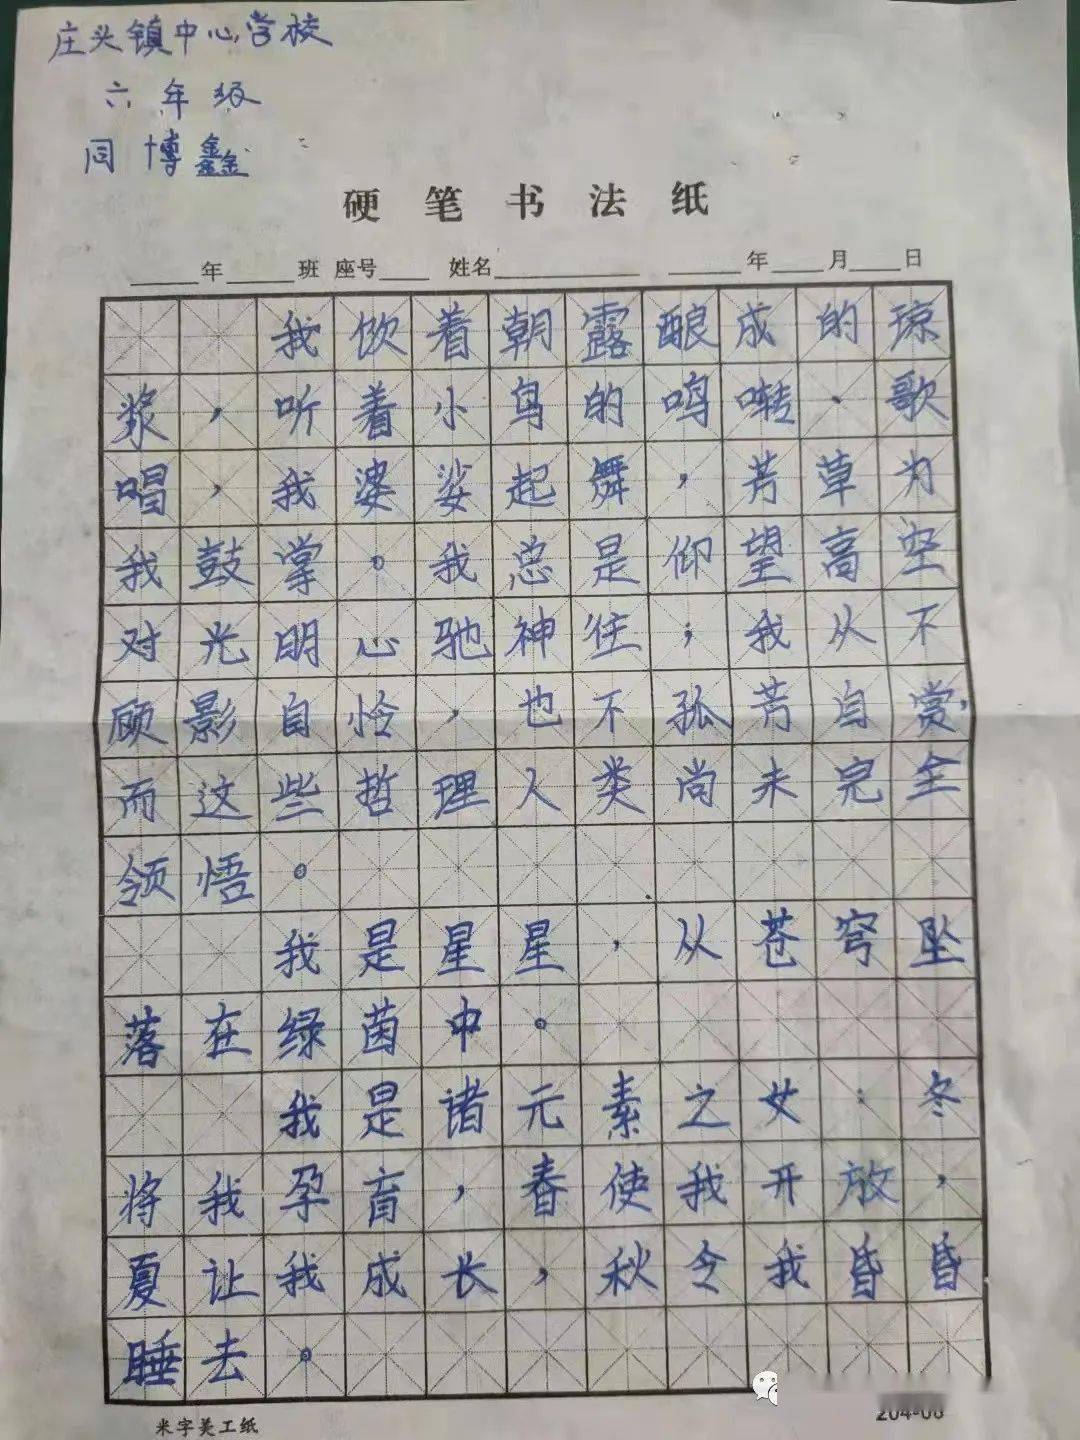 庄头镇中心学校
六年级
同博鑫
硬笔书法纸
年 班 座号 姓名 年 月 日
我饮着朝露酿成的琼
浆，听着小鸟的鸣啭、歌
唱，我婆娑起舞，芳草为
我鼓掌。我总是仰望高空
对光明心驰神往；我从不
顾影自怜，也不孤芳自赏，
而这些哲理人类尚未完全
领悟。
我是星星，从苍穹坠
落在绿茵中。
我是诸元素之女：冬
将我孕育，春使我开放，
夏让我成长，秋令我昏昏
睡去。
米字美工纸